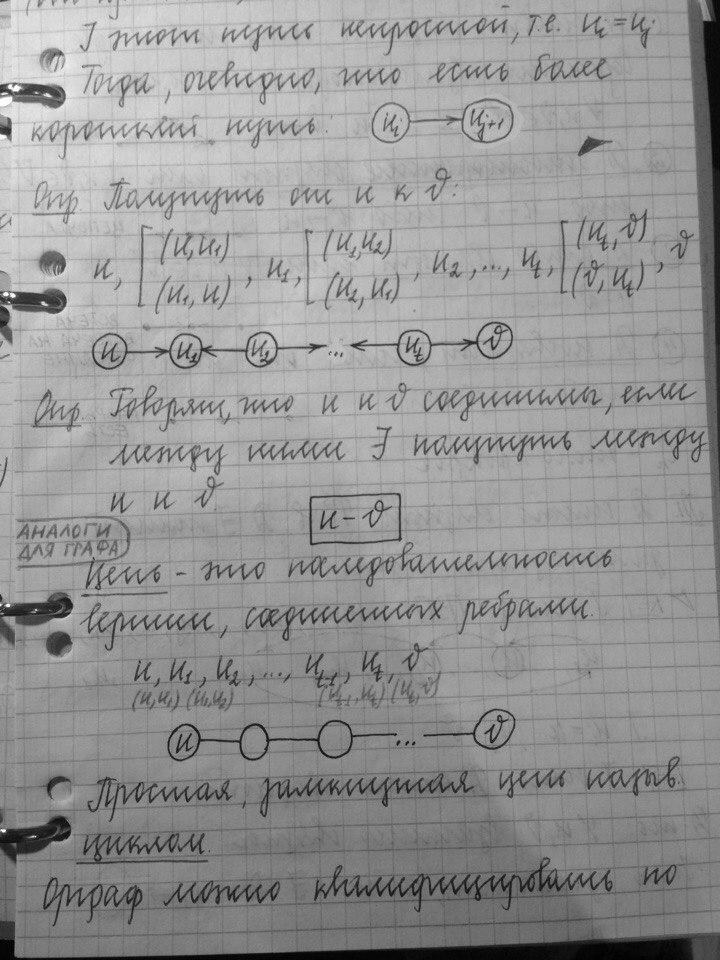 ] этот путь непростой, т.е. u_i = u_j
Тогда, очевидно, что есть более
короткий путь: u_i → u_j+1
Опр Полупуть от u к v:
u, [ (u,u_1) (u_1,u) , u_1, [ (u_1,u_2) (u_2,u_1) , u_2, ..., u_t, [ (u_t,v) (v,u_t) , v
u u_1 u_2 ... u_t v
Опр. Говорят, что u и v соединимы, если
между ними ∃ полупуть между
u и v.
u - v
АНАЛОГИ
ДЛЯ ГРАФА
Цепь - это последовательность
вершин, соединенных ребрами.
u, u_1, u_2, ..., u_t-1, u_t, v
(u,u_1) (u_1,u_2) (u_t-1,u_t) (u_t,v)
u ... v
Простая, замкнутая цепь назыв.
циклом.
Орграф можно квалифицировать по